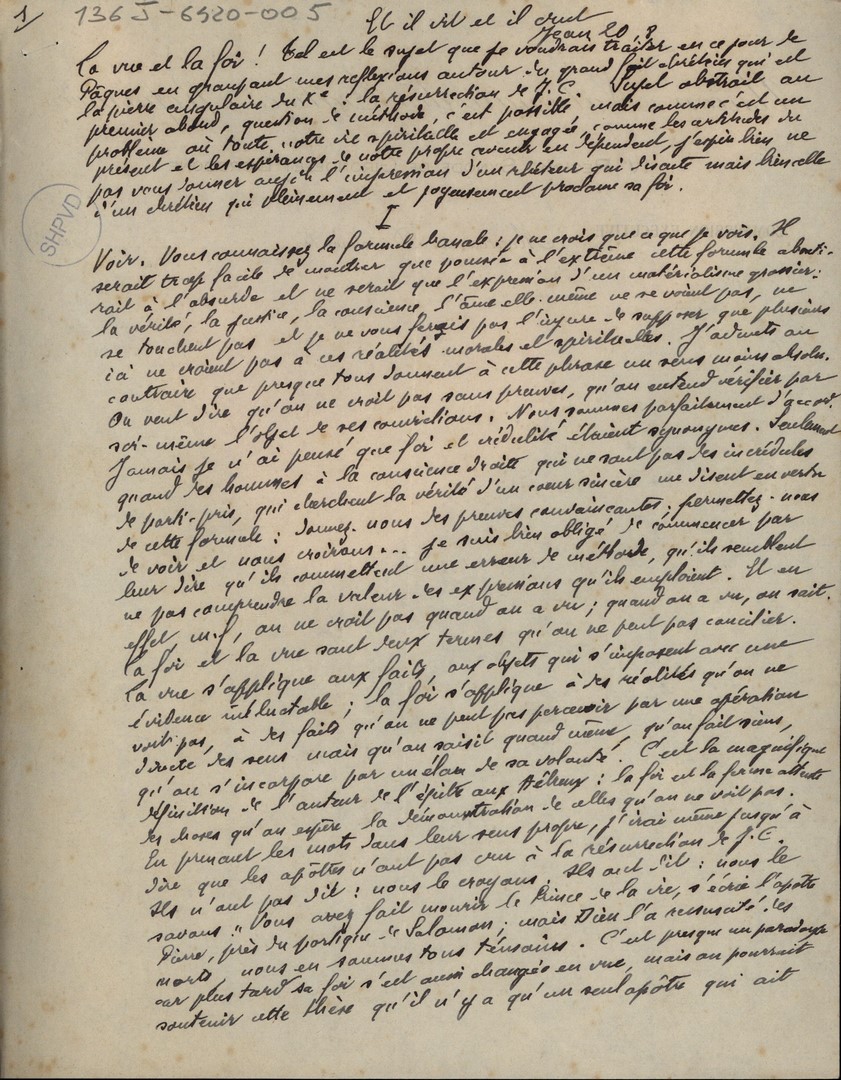 1/
136 J-6920-005
Et il vit et il crut
Jean 20 8
La vue et la foi ! Tel est le sujet que je voudrais traiter en ce jour de
Pâques en groupant mes réflexions autour du grand fait chrétien qui est
la pierre angulaire du Xe : la résurrection de J.C. Sujet abstrait au
premier abord, question de méthode, c'est possible mais comme c'est un
problème où toute notre vie spirituelle est engagée, comme les certitudes du
présent et les espérances de notre propre avenir en dépendent, j'espère bien ne
pas vous donner l'impression d'un rhéteur qui discute mais bien celle
d'un chrétien qui pleinement et joyeusement proclame sa foi.
SHPVD
I
Voir. Vous connaissez la formule banale : je ne crois que ce que je vois. Il
serait trop facile de montrer que poussée à l'extrême cette formule abouti-
rait à l'absurde et ne serait que l'expression d'un matérialisme grossier :
la vérité, la justice, la conscience, l'âme elle-même ne se voient pas, ne
se touchent pas et je ne vous ferais pas l'injure de supposer que plusieurs
ici ne croient pas à ces réalités morales et spirituelles. J'admets au
contraire que presque tous donnent à cette phrase un sens moins absolu.
On veut dire qu'on ne croit pas sans preuves, qu'on entend vérifier par
soi-même l'objet de ses convictions. Nous sommes parfaitement d'accord.
Jamais je n'ai pensé que foi et crédulité étaient synonymes. Seulement
quand des hommes à la conscience droite qui ne sont pas des incrédules
de parti-pris, qui cherchent la vérité d'un coeur sincère me disent en vertu
de cette formule : donnez-nous des preuves convaincantes ; permettez-nous
de voir et nous croirons... je suis bien obligé de commencer par
leur dire qu'ils commettent une erreur de méthode, qu'ils semblent
ne pas comprendre la valeur des expressions qu'ils emploient. Et en
effet m.f, on ne croit pas quand on a vu ; quand on a vu, on sait.
La foi et la vue sont deux termes qu'on ne peut pas concilier.
La vue s'applique aux faits, aux objets qui s'imposent avec une
évidence inéluctable ; la foi s'applique à des réalités qu'on ne
voit pas, à des faits qu'on ne peut pas percevoir par une opération
directe des sens mais qu'on saisit quand même, qu'on fait siens,
qu'on s'incorpore par un élan de sa volonté. C'est la magnifique
définition de l'auteur de l'épître aux Hébreux : la foi est la ferme attente
des choses qu'on espère, la démonstration de celles qu'on ne voit pas.
En prenant les mots dans leur sens propre, j'irai même jusqu'à
dire que les apôtres n'ont pas cru à la résurrection de J.C.
Ils n'ont pas dit : nous le croyons. Ils ont dit : nous le
savons. "Vous avez fait mourir le Prince de la vie, s'écrie l'apôtre
Pierre, près du portique de Salomon ; mais Dieu l'a ressuscité des
morts, nous en sommes tous témoins. C'est presque un paradoxe
car plus tard sa foi s'est aussi changée en vue, mais on pourrait
soutenir cette thèse qu'il n'y a qu'un seul apôtre qui ait